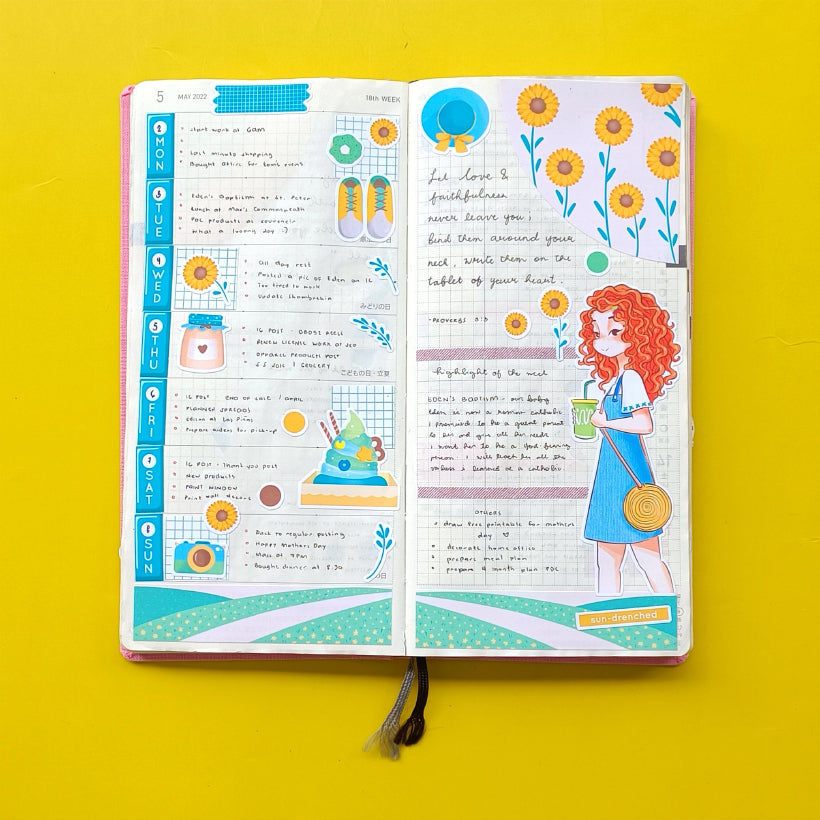 5 MAY 2022
18th WEEK
2 MON
start work at 6am
Last minute shopping
Bought attire for tom's event
3 TUE
Eden's Baptism at St. Peter
Lunch at Max's Commonwealth
PDC products as souvenir
What a luvvy day :)
4 WED
All day rest
Posted a pic of Eden on IG
Too tired to work
Update
みどりの日
5 THU
IG POST -
RENEW LICENSE WORK AT
PRODUCTS POST
GROCERY
こどもの日・立夏
6 FRI
IG POST END OF SALE / APRIL
PLANNER SPREADS
at Las Piñas
Prepare orders for pick-up
7 SAT
IG POST - Thank you post
New products
PAINT WINDOW
Print wall
8 SUN
Back to regular posting
Happy Mothers Day
Mass at 7PM
Bought dinner at 8:30
Let love &
faithfulness
never leave you;
bind them around your
neck, write them on the
tablet of your heart.
-PROVERBS 3:3
highlight of the week
EDEN'S BAPTISM - our baby
Eden is now a roman catholic
I promised to be a great parent
to her and give all her needs.
I want her to be a God-fearing
person. I will teach her all the
values I learned as a catholic.
OTHERS
draw free printable for mothers
day
decorate home office
prepare meal plan
prepare a month plan PDC
sun-drenched